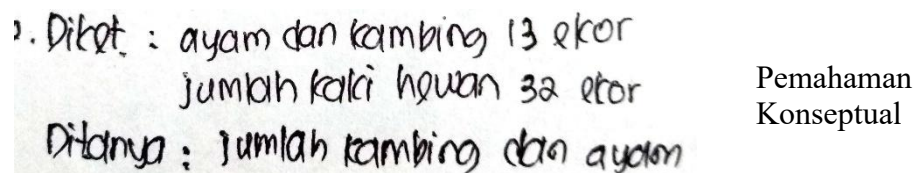 2. Diket : ayam dan kambing 13 ekor
jumlah kaki hewan 32 ekor
Ditanya : jumlah kambing dan ayam
Pemahaman
Konseptual